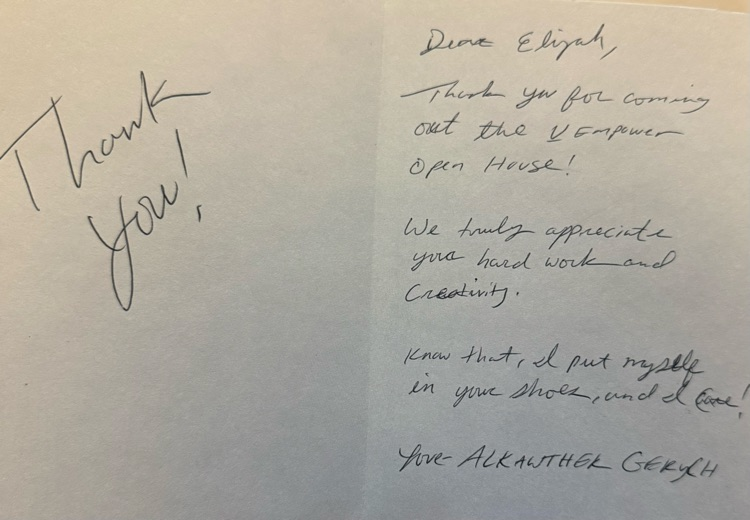 Thank
You!
Dear Elijah,
Thank you for coming
out the V Empower
Open House!
We truly appreciate
your hard work and
Creativity.
Know that, I put myself
in your shoes, and I Care!
Love- ALKAWTHER GERYCH